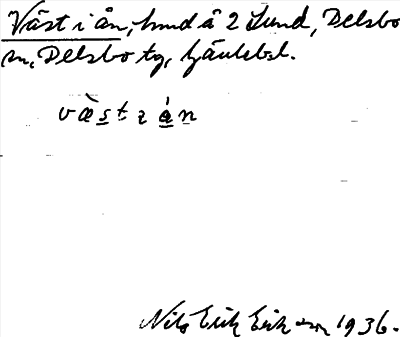 Väst i ån, hmd å 2 Lund, Delsbo
sn, Delsbo tg, Gävlebl.
væ̀stɪ ån
Nils Erik Eriksson 1936.